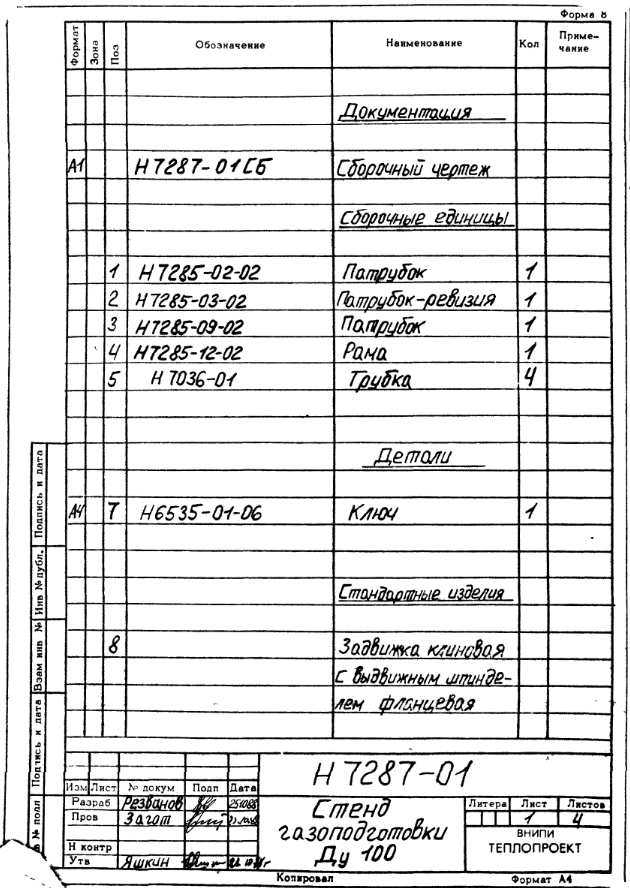 Форма 8
Формат Зона Поз Обозначение Наименование Кол Приме-
чание
Документация
А1 Н7287-01СБ Сборочный чертеж
Сборочные единицы
1 Н7285-02-02 Патрубок 1
2 Н7285-03-02 Патрубок-ревизия 1
3 Н7285-09-02 Патрубок 1
4 Н7285-12-02 Рама 1
5 Н7036-01 Трубка 4
Детали
А4 7 Н6535-01-06 Ключ 1
Стандартные изделия
8 Задвижка клиновая
с выдвижным шпинде-
лем фланцевая
Подпись и дата
Инв № публ.
Взам инв №
Подпись и дата
№ подл
Н 7287-01
Изм Лист № докум Подп Дата
Разраб Резванов
Пров Загот
Н контр
Утв Яшкин
Стенд
газоподготовки
Ду 100
Литера Лист Листов
1 4
ВНИПИ
ТЕПЛОПРОЕКТ
Копировал Формат А4